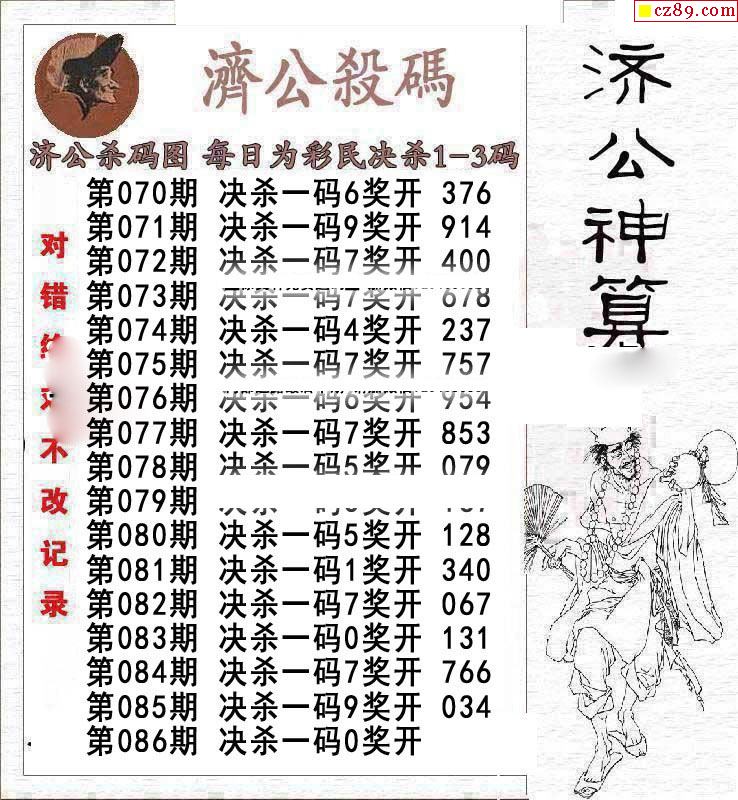 cz89.com
濟公殺碼
济公杀码图 每日为彩民决杀1-3码
第070期 决杀一码6奖开 376
第071期 决杀一码9奖开 914
第072期 决杀一码7奖开 400
第073期 决杀一码7奖开 678
第074期 决杀一码4奖开 237
第075期 决杀一码7奖开 757
第076期 决杀一码6奖开 954
第077期 决杀一码7奖开 853
第078期 决杀一码5奖开 079
第079期
第080期 决杀一码5奖开 128
第081期 决杀一码1奖开 340
第082期 决杀一码7奖开 067
第083期 决杀一码0奖开 131
第084期 决杀一码7奖开 766
第085期 决杀一码9奖开 034
第086期 决杀一码0奖开
对错 不改记录
济公神算